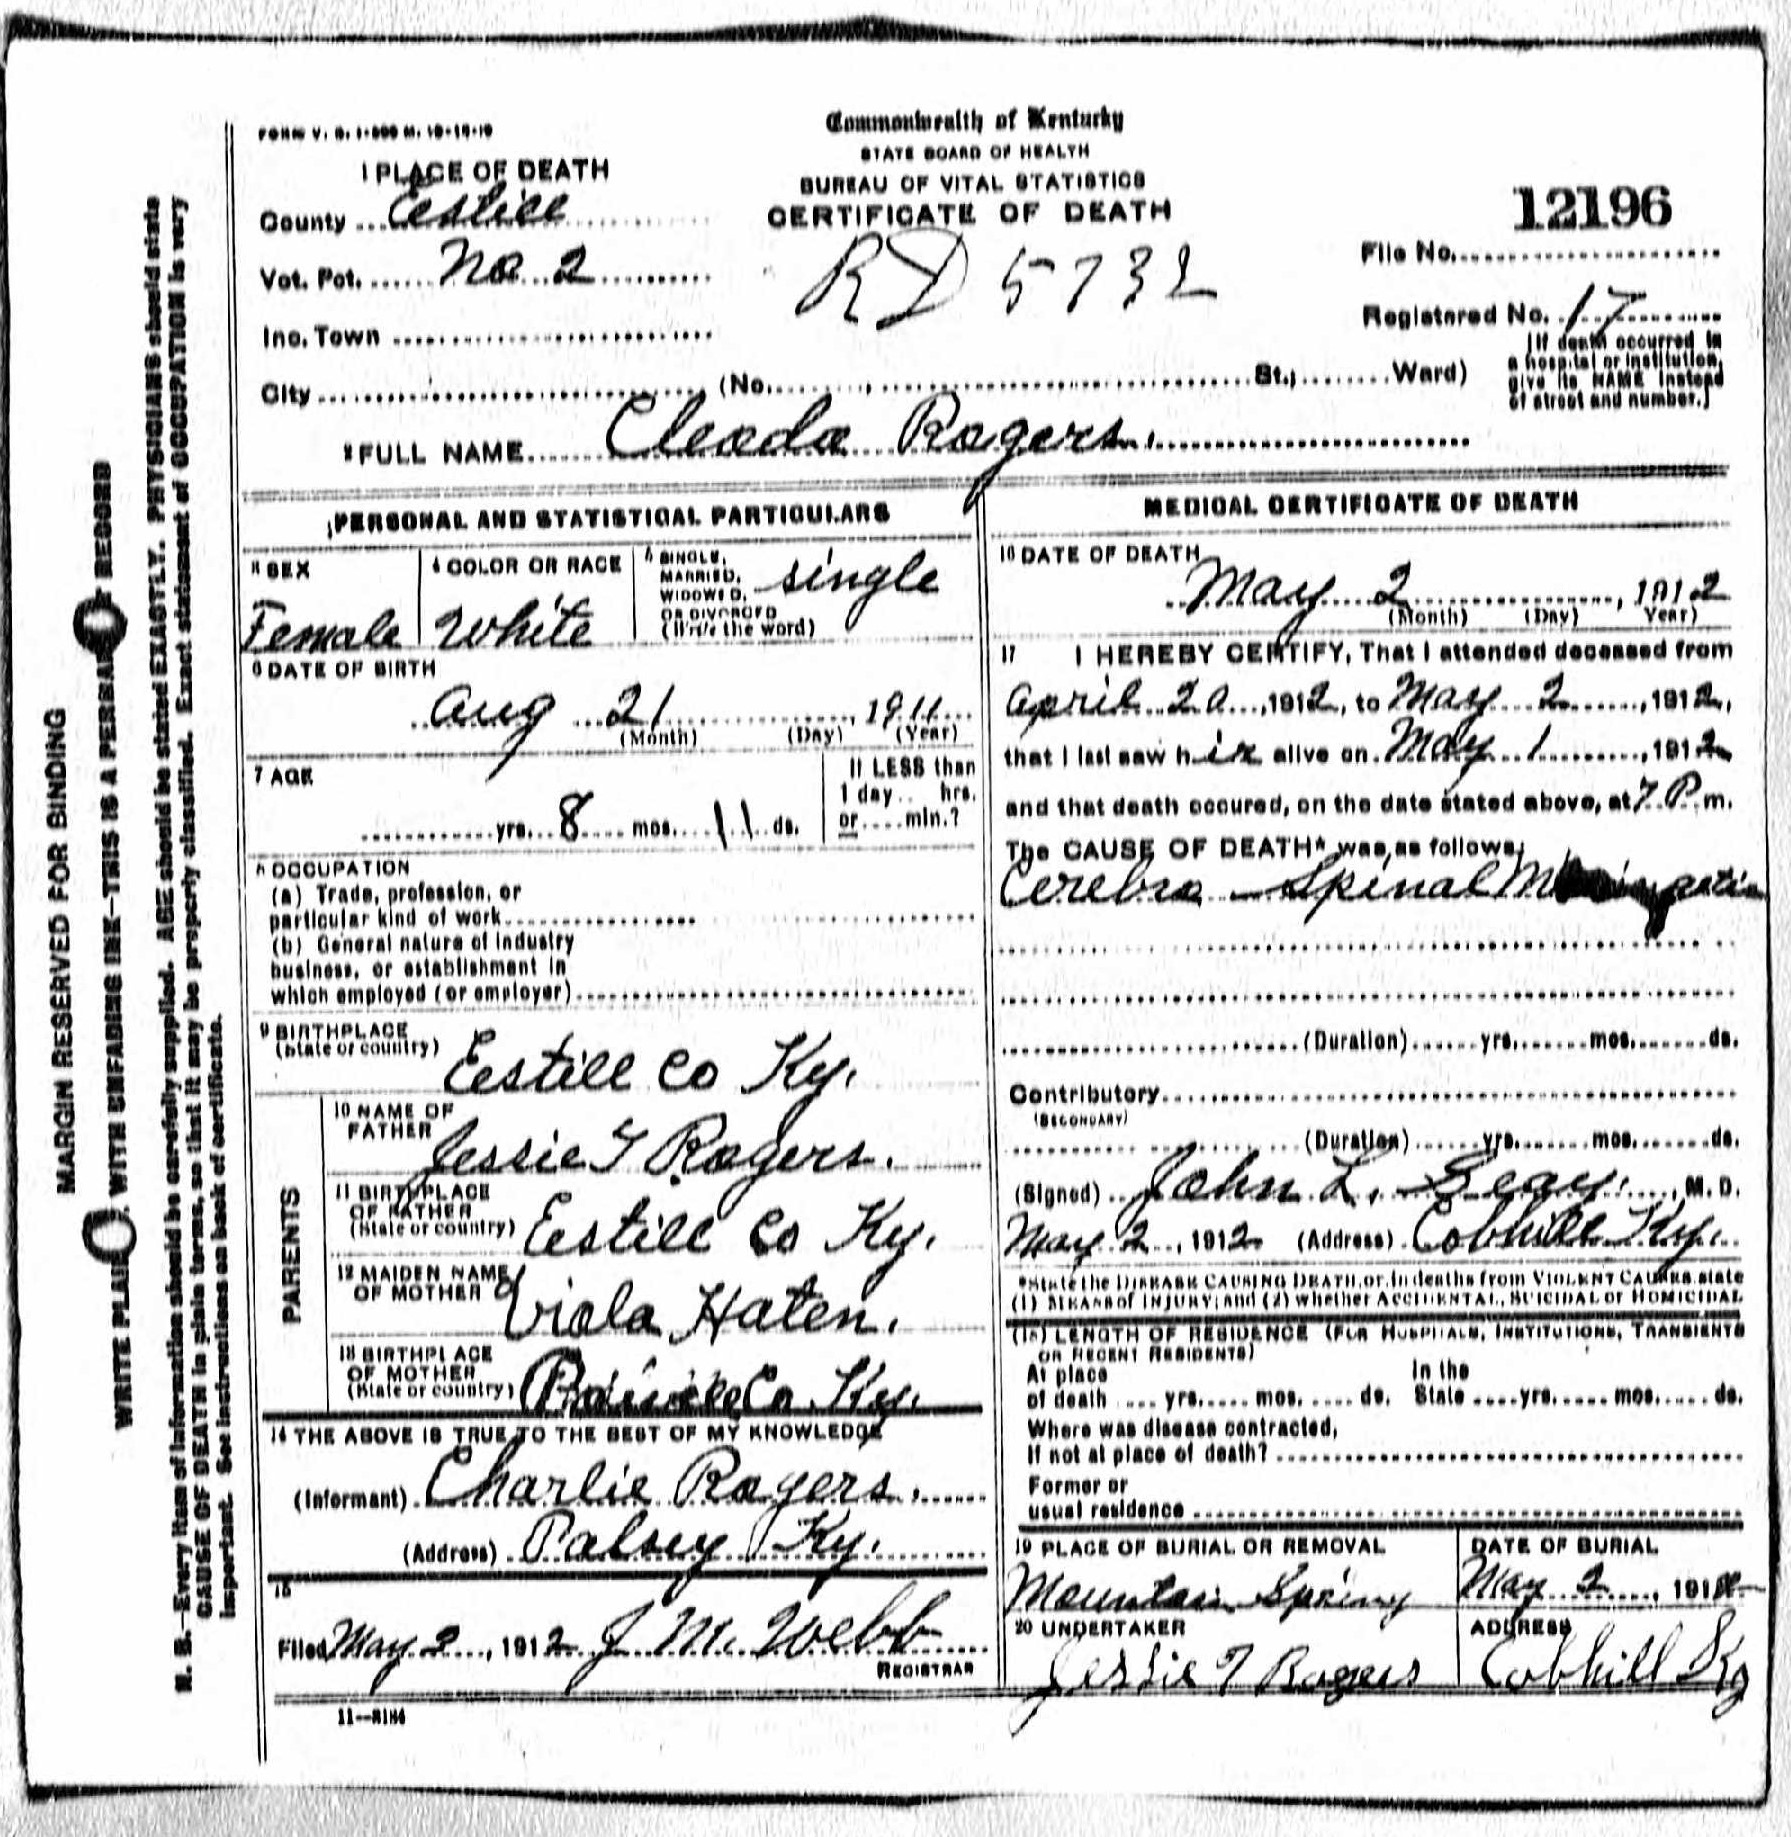 FORM V. S. 1-500 M. 10-18-10
Commonwealth of Kentucky
STATE BOARD OF HEALTH
BUREAU OF VITAL STATISTICS
CERTIFICATE OF DEATH
1 PLACE OF DEATH
County Estill
Vot. Pct. No 2
Inc. Town
City (No. St.; Ward)
RD 5732
12196
File No.
Registered No. 17
[If death occurred in
a hospital or institution,
give its NAME instead
of street and number.]
2 FULL NAME Cleada Rogers.
PERSONAL AND STATISTICAL PARTICULARS
3 SEX
Female
4 COLOR OR RACE
White
5 SINGLE,
MARRIED,
WIDOWED,
OR DIVORCED
(Write the word)
single
6 DATE OF BIRTH
Aug 21, 1911
(Month) (Day) (Year)
7 AGE
yrs. 8 mos. 11 ds.
If LESS than
1 day hrs.
or min.?
8 OCCUPATION
(a) Trade, profession, or
particular kind of work
(b) General nature of industry
business, or establishment in
which employed (or employer)
9 BIRTHPLACE
(State or country)
Estill Co Ky.
PARENTS
10 NAME OF
FATHER
Jessie T Rogers.
11 BIRTHPLACE
OF FATHER
(State or country)
Estill Co Ky.
12 MAIDEN NAME
OF MOTHER
Viola Haten.
13 BIRTHPLACE
OF MOTHER
(State or country)
Co. Ky.
14 THE ABOVE IS TRUE TO THE BEST OF MY KNOWLEDGE
(Informant) Charlie Rogers.
(Address) Palsey Ky.
15
Filed May 2, 1912 J. M. Webb
REGISTRAR
11--3184
MEDICAL CERTIFICATE OF DEATH
16 DATE OF DEATH
May 2, 1912
(Month) (Day) Year)
17 I HEREBY CERTIFY, That I attended deceased from
April 20, 1912, to May 2, 1912,
that I last saw h alive on May 1, 1912
and that death occured, on the date stated above, at 7 P m.
The CAUSE OF DEATH* was, as follows:
Cerebro Spinal
(Duration) yrs. mos. ds.
Contributory
(SECONDARY)
(Duration) yrs. mos. ds.
(Signed) John L. , M. D.
May 2, 1912 (Address) Cobhill Ky.
*State the DISEASE CAUSING DEATH, or, in deaths from VIOLENT CAUSES, state
(1) MEANS of INJURY; and (2) whether ACCIDENTAL, SUICIDAL or HOMICIDAL
(18) LENGTH OF RESIDENCE (FOR HOSPITALS, INSTITUTIONS, TRANSIENTS
OR RECENT RESIDENTS)
At place
of death yrs. mos. ds.
In the
State yrs. mos. ds.
Where was disease contracted,
If not at place of death?
Former or
usual residence
19 PLACE OF BURIAL OR REMOVAL
Mountain Spring
DATE OF BURIAL
May 2, 191
20 UNDERTAKER
Jessie T Rogers
ADDRESS
Cobhill Ky
MARGIN RESERVED FOR BINDING
WRITE PLAI WITH UNFADING INK--THIS IS A PERMA RECORD
N. B.--Every item of information should be carefully supplied. AGE should be stated EXACTLY. PHYSICIANS should state
CAUSE OF DEATH in plain terms, so that it may be properly classified. Exact statement of OCCUPATION is very
important. See instructions on back of certificate.